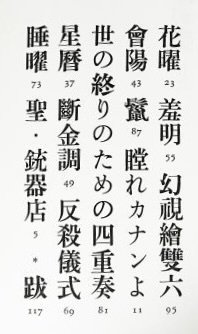 花曜 23 羞明 55 幻視繪雙六 95
會陽 43 鬣 87 瞠れカナンよ 11
世の終りのための四重奏 81
星曆 37 斷金調 49 反殺儀式 69
睡曜 73 聖・銃器店 5 * 跋 117